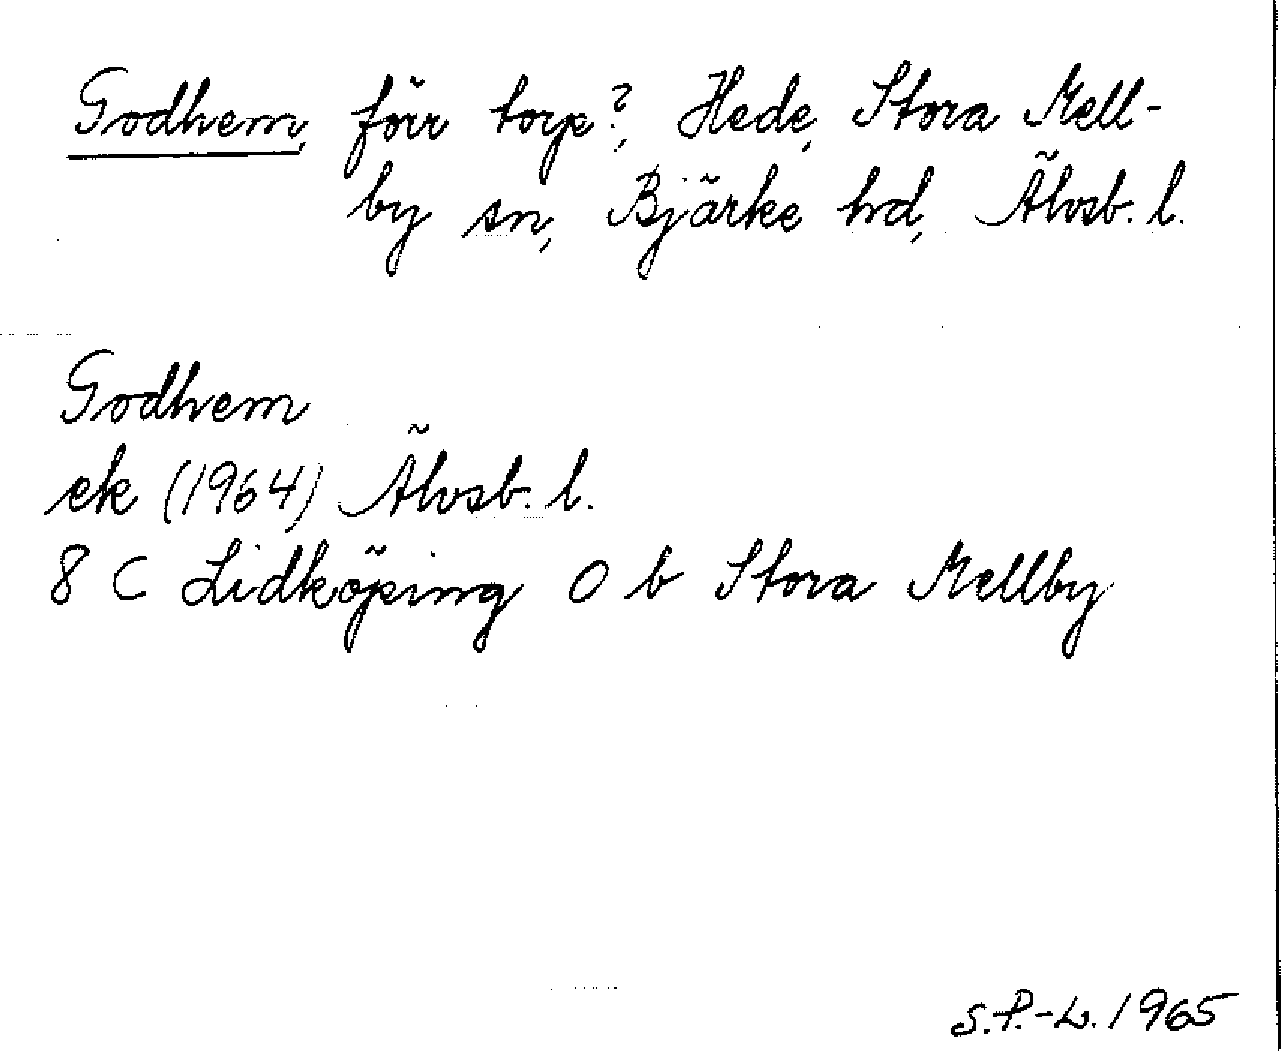 Godhem, förr torp?, Hede, Stora Mell-
by sn, Bjärke hd, Älvsb. l.
Godhem
ek (1964) Älvsb. l.
8 C Lidköping O b Stora Mellby
S.P.-L. 1965